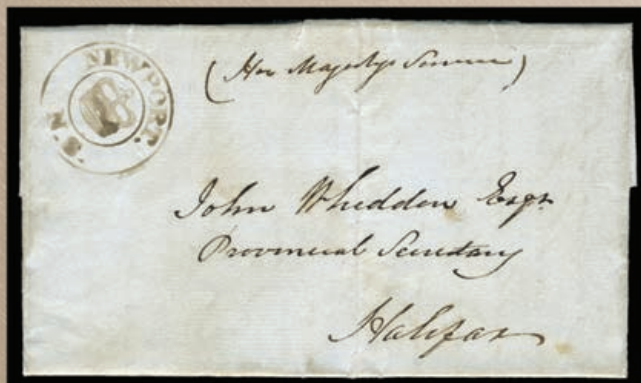 NEWPORT. N.S.
(Her Majestys Service)
John Whidden Esqr.
Provincial Secretary
Halifax